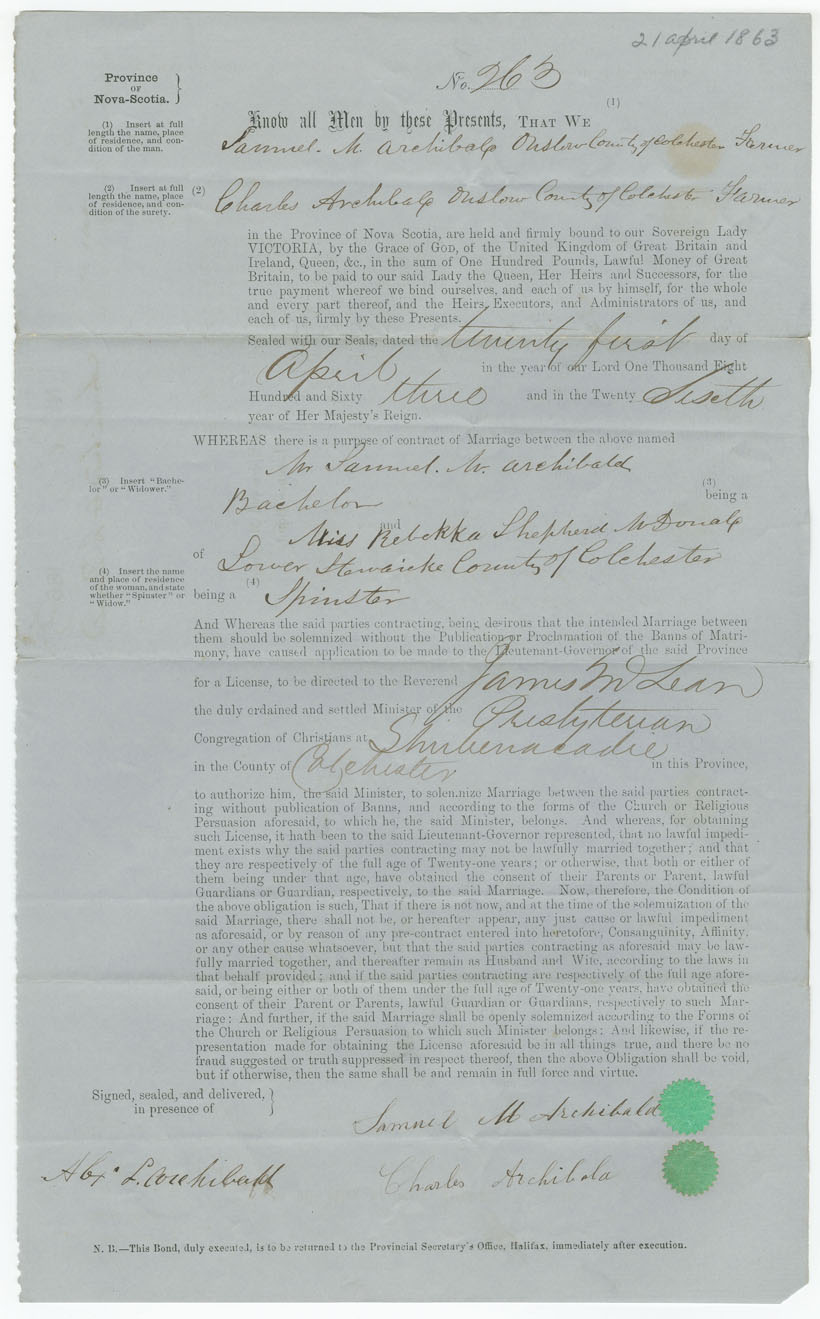 21 april 1863
Province
OF
Nova-Scotia.
No. 263
(1)
Know all Men by these Presents, THAT WE
(1) Insert at full
length the name, place
of residence, and con-
dition of the man.
Samuel. M. Archibald Onslow County of Colchester Farmer
(2) Insert at full
length the name, place
of residence, and con-
dition of the surety.
(2) Charles Archibald Onslow County of Colchester Farmer
in the Province of Nova Scotia, are held and firmly bound to our Sovereign Lady
VICTORIA, by the Grace of GOD, of the United Kingdom of Great Britain and
Ireland, Queen, &c., in the sum of One Hundred Pounds, Lawful Money of Great
Britain, to be paid to our said Lady the Queen, Her Heirs and Successors, for the
true payment whereof we bind ourselves, and each of us by himself, for the whole
and every part thereof, and the Heirs, Executors, and Administrators of us, and
each of us, firmly by these Presents.
Sealed with our Seals, dated the twenty first day of
April in the year of our Lord One Thousand Eight
Hundred and Sixty three and in the Twenty Sixeth
year of Her Majesty's Reign.
WHEREAS there is a purpose of contract of Marriage between the above named
Mr Samuel. M. archibald
(3) Insert "Bache-
lor" or "Widower."
(3)
being a
Bachelor
and
Miss Rebekka Shepherd McDonald
of Lower Stewiacke County of Colchester
(4) Insert the name
and place of residence
of the woman, and state
whether "Spinster" or
"Widow."
(4)
being a Spinster
And Whereas the said parties contracting, being desirous that the intended Marriage between
them should be solemnized without the Publication or Proclamation of the Banns of Matri-
mony, have caused application to be made to the Lieutenant-Governor of the said Province
for a License, to be directed to the Reverend James McLean
the duly ordained and settled Minister of the Presbyterian
Congregation of Christians at Shubenacadie
in the County of Colchester in this Province,
to authorize him, the said Minister, to solemnize Marriage between the said parties contract-
ing without publication of Banns, and according to the forms of the Church or Religious
Persuasion aforesaid, to which he, the said Minister, belongs. And whereas, for obtaining
such License, it hath been to the said Lieutenant-Governor represented, that no lawful impedi-
ment exists why the said parties contracting may not be lawfully married together; and that
they are respectively of the full age of Twenty-one years; or otherwise, that both or either of
them being under that age, have obtained the consent of their Parents or Parent, lawful
Guardians or Guardian, respectively, to the said Marriage. Now, therefore, the Condition of
the above obligation is such, That if there is not now, and at the time of the solemnization of the
said Marriage, there shall not be, or hereafter appear, any just cause or lawful impediment
as aforesaid, or by reason of any pre-contract entered into heretofore, Consanguinity, Affinity,
or any other cause whatsoever, but that the said parties contracting as aforesaid may be law-
fully married together, and thereafter remain as Husband and Wife, according to the laws in
that behalf provided; and if the said parties contracting are respectively of the full age afore-
said, or being either or both of them under the full age of Twenty-one years, have obtained the
consent of their Parent or Parents, lawful Guardian or Guardians, respectively to such Mar-
riage: And further, if the said Marriage shall be openly solemnized according to the Forms of
the Church or Religious Persuasion to which such Minister belongs: And likewise, if the re-
presentation made for obtaining the License aforesaid be in all things true, and there be no
fraud suggested or truth suppressed in respect thereof, then the above Obligation shall be void,
but if otherwise, then the same shall be and remain in full force and virtue.
Signed, sealed, and delivered,
in presence of
Samuel M Archibald
Alex. L. Archibald
Charles Archibald
N. B.—This Bond, duly executed, is to be returned to the Provincial Secretary's Office, Halifax, immediately after execution.